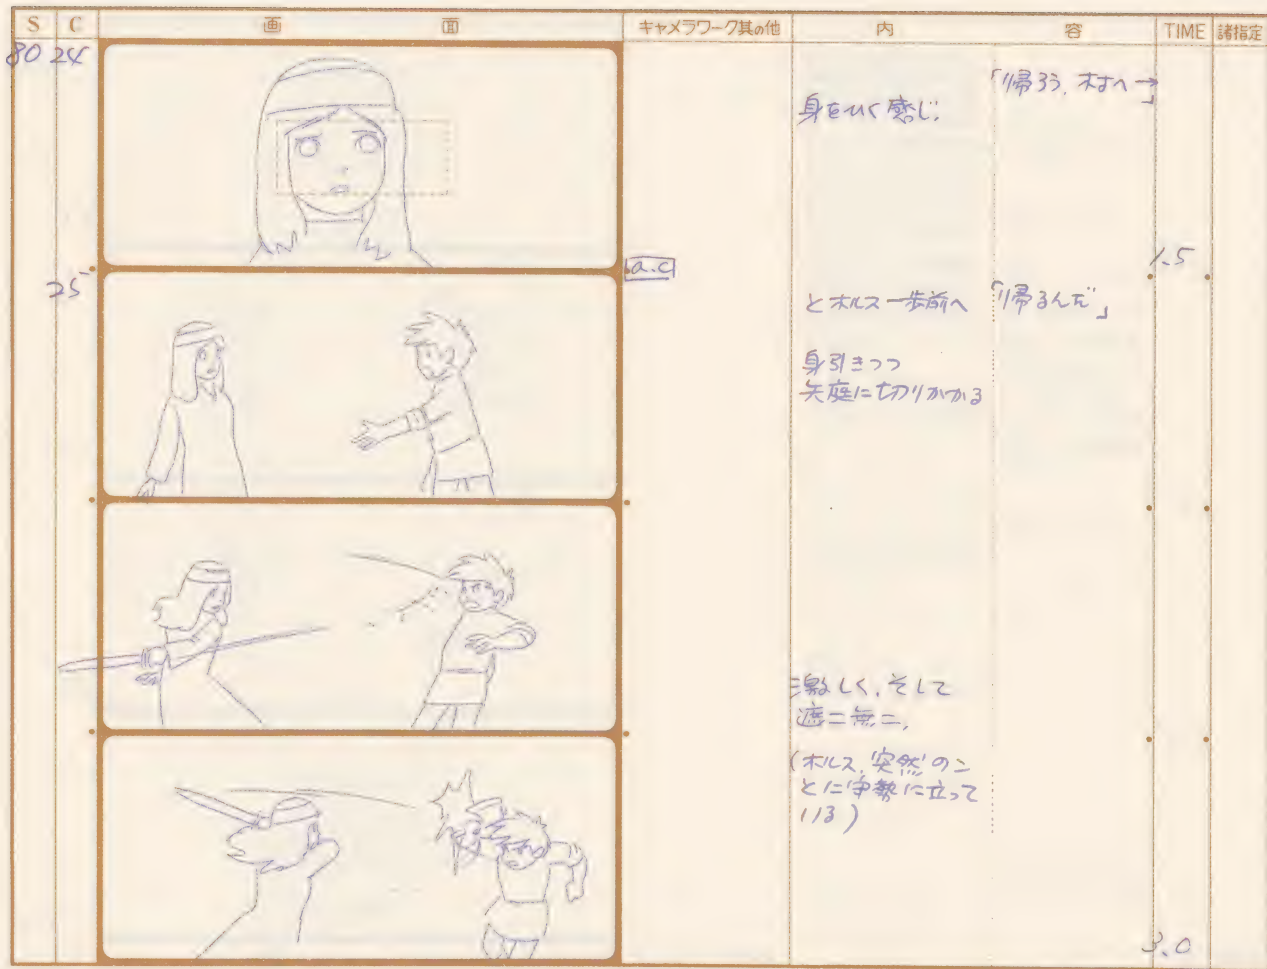 S C 画面 キャメラワーク其の他 内容 TIME 諸指定
80 24
「帰ろう、村へ→」
身をひく感じ.
1.5
25
a.c
とホルス一歩前へ 「帰るんだ」
身引きつつ
矢庭に切りかかる
激しく、そして
遮二無二、
(ホルス、突然のこ
とに守勢に立って
いる)
3.0